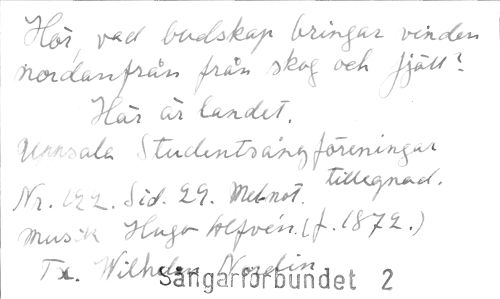 Hör, vad budskap bringar vinden
nordanfrån från skog och fjäll?
Här är landet.
Uppsala Studentsångföreningar
tillegnad.
Nr. 122. Sid. 29. Mel-not.
musik Hugo Alfvén. (f. 1872.)
Tx. Wilhelm Nordin.
Sångarförbundet 2